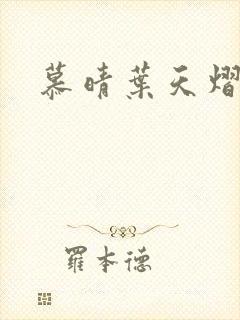 慕晴葉天熠
羅本德